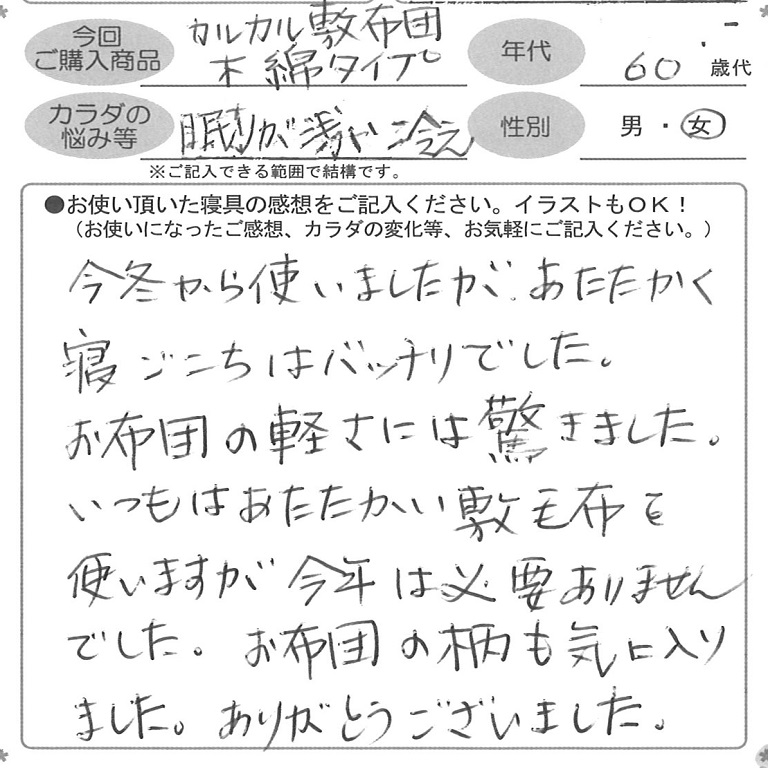 今回
ご購入商品
カルカル敷布団
木綿タイプ
年代
60 歳代
カラダの
悩み等
眠りが浅い 冷え
性別
男・女
※ご記入できる範囲で結構です。
●お使い頂いた寝具の感想をご記入ください。イラストもOK！
（お使いになったご感想、カラダの変化等、お気軽にご記入ください。）
今冬から使いましたが、あたたかく
寝ごこちはバッチリでした。
お布団の軽さには驚きました。
いつもはあたたかい敷毛布を
使いますが今年は必要ありません
でした。お布団の柄も気に入り
ました。ありがとうございました。